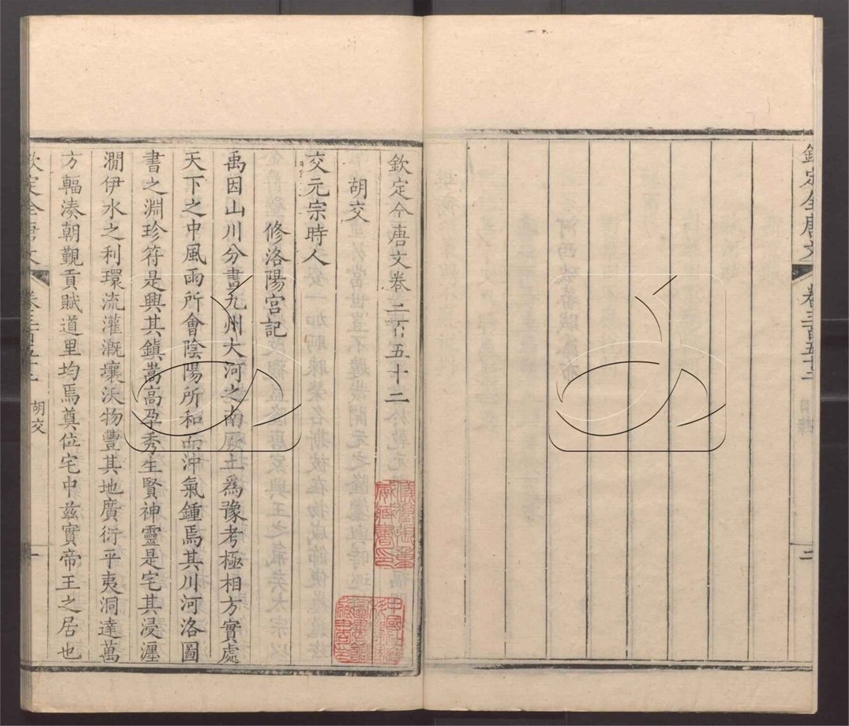 欽定全唐文 卷三百五十二
二
欽定全唐文卷三百五十二
胡交
交元宗時人
修洛陽宮記
禹因山川分畫九州大河之南厥土爲豫考極相方實處
天下之中風雨所會陰陽所和而沖氣鍾焉其川河洛圖
書之淵珍符是興其鎮嵩高孕秀生賢神靈是宅其浸瀍
澗伊水之利環流灌溉壤沃物豐其地廣衍平夷洞達萬
方輻湊朝覲貢賦道里均焉奠位宅中兹實帝王之居也
欽定全唐文 卷三百五十二 胡交 一